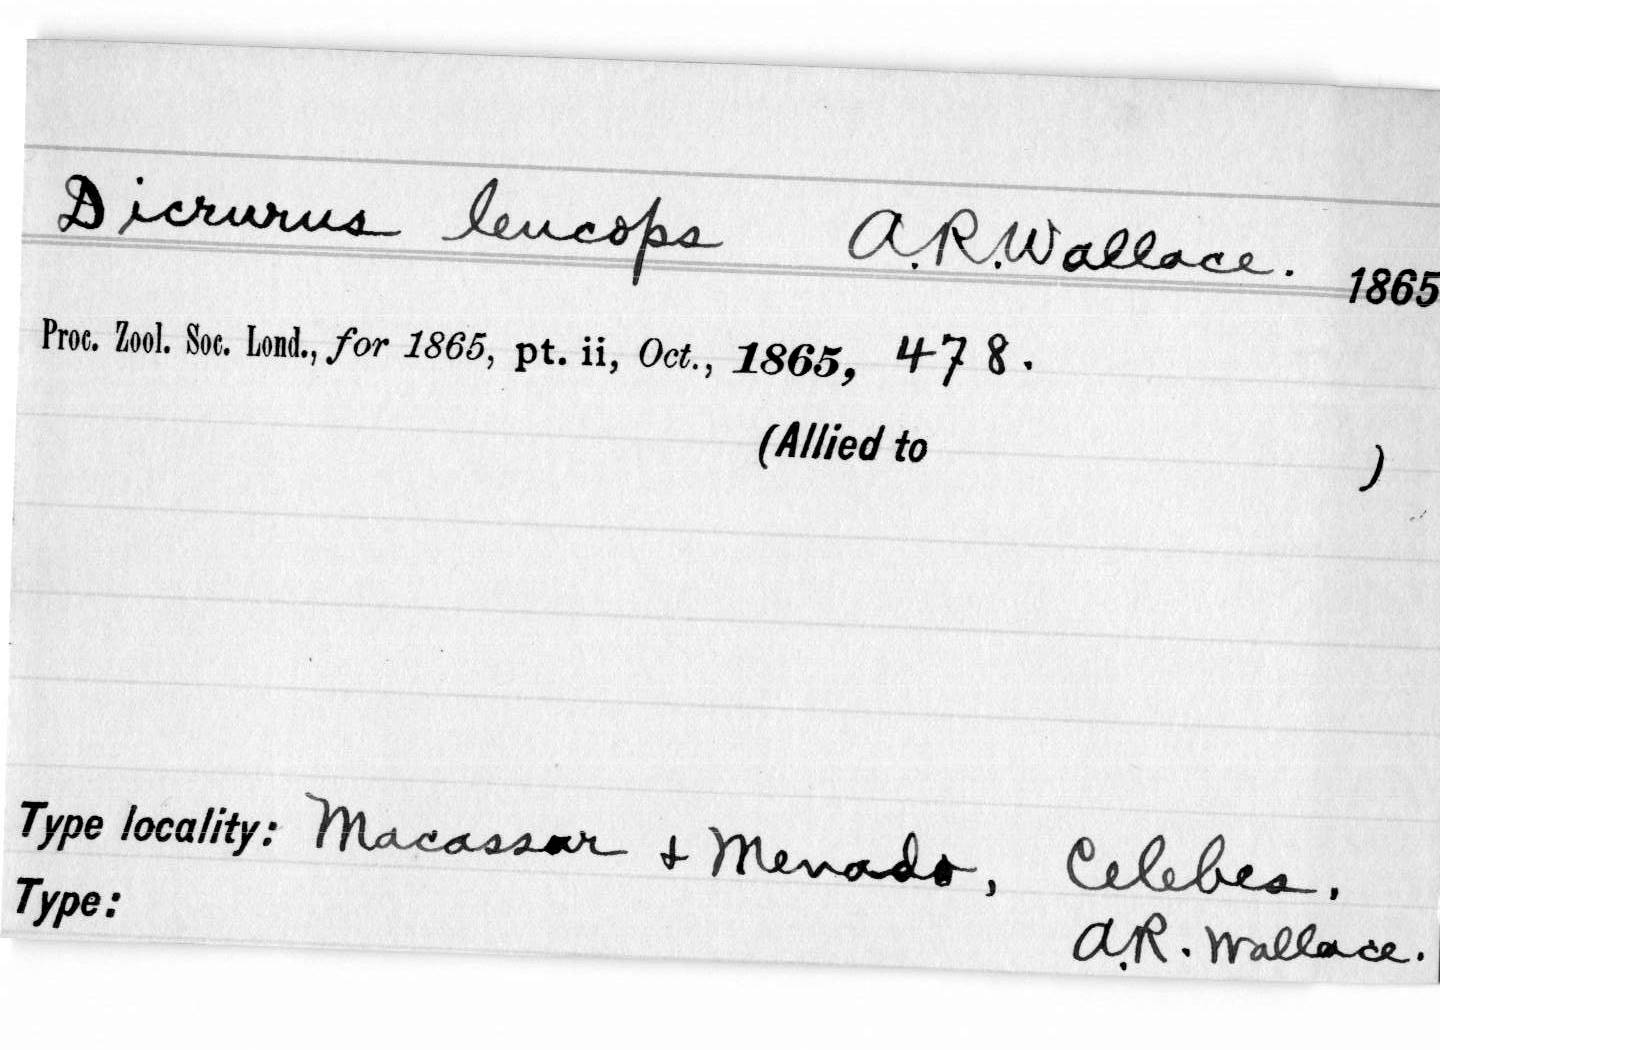 Dicrurus leucops A.R.Wallace. 1865
Proc. Zool. Soc. Lond., for 1865, pt. ii, Oct., 1865, 478.
(Allied to )
Type locality: Macassar & Menado, Celebes,
Type: A.R. Wallace.